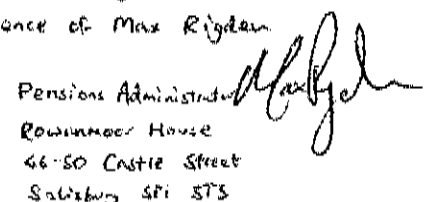 ence of Max Rigden
Pensions Administrator
Rowanmoor House
46-50 Castle Street
Salisbury SP1 3TS